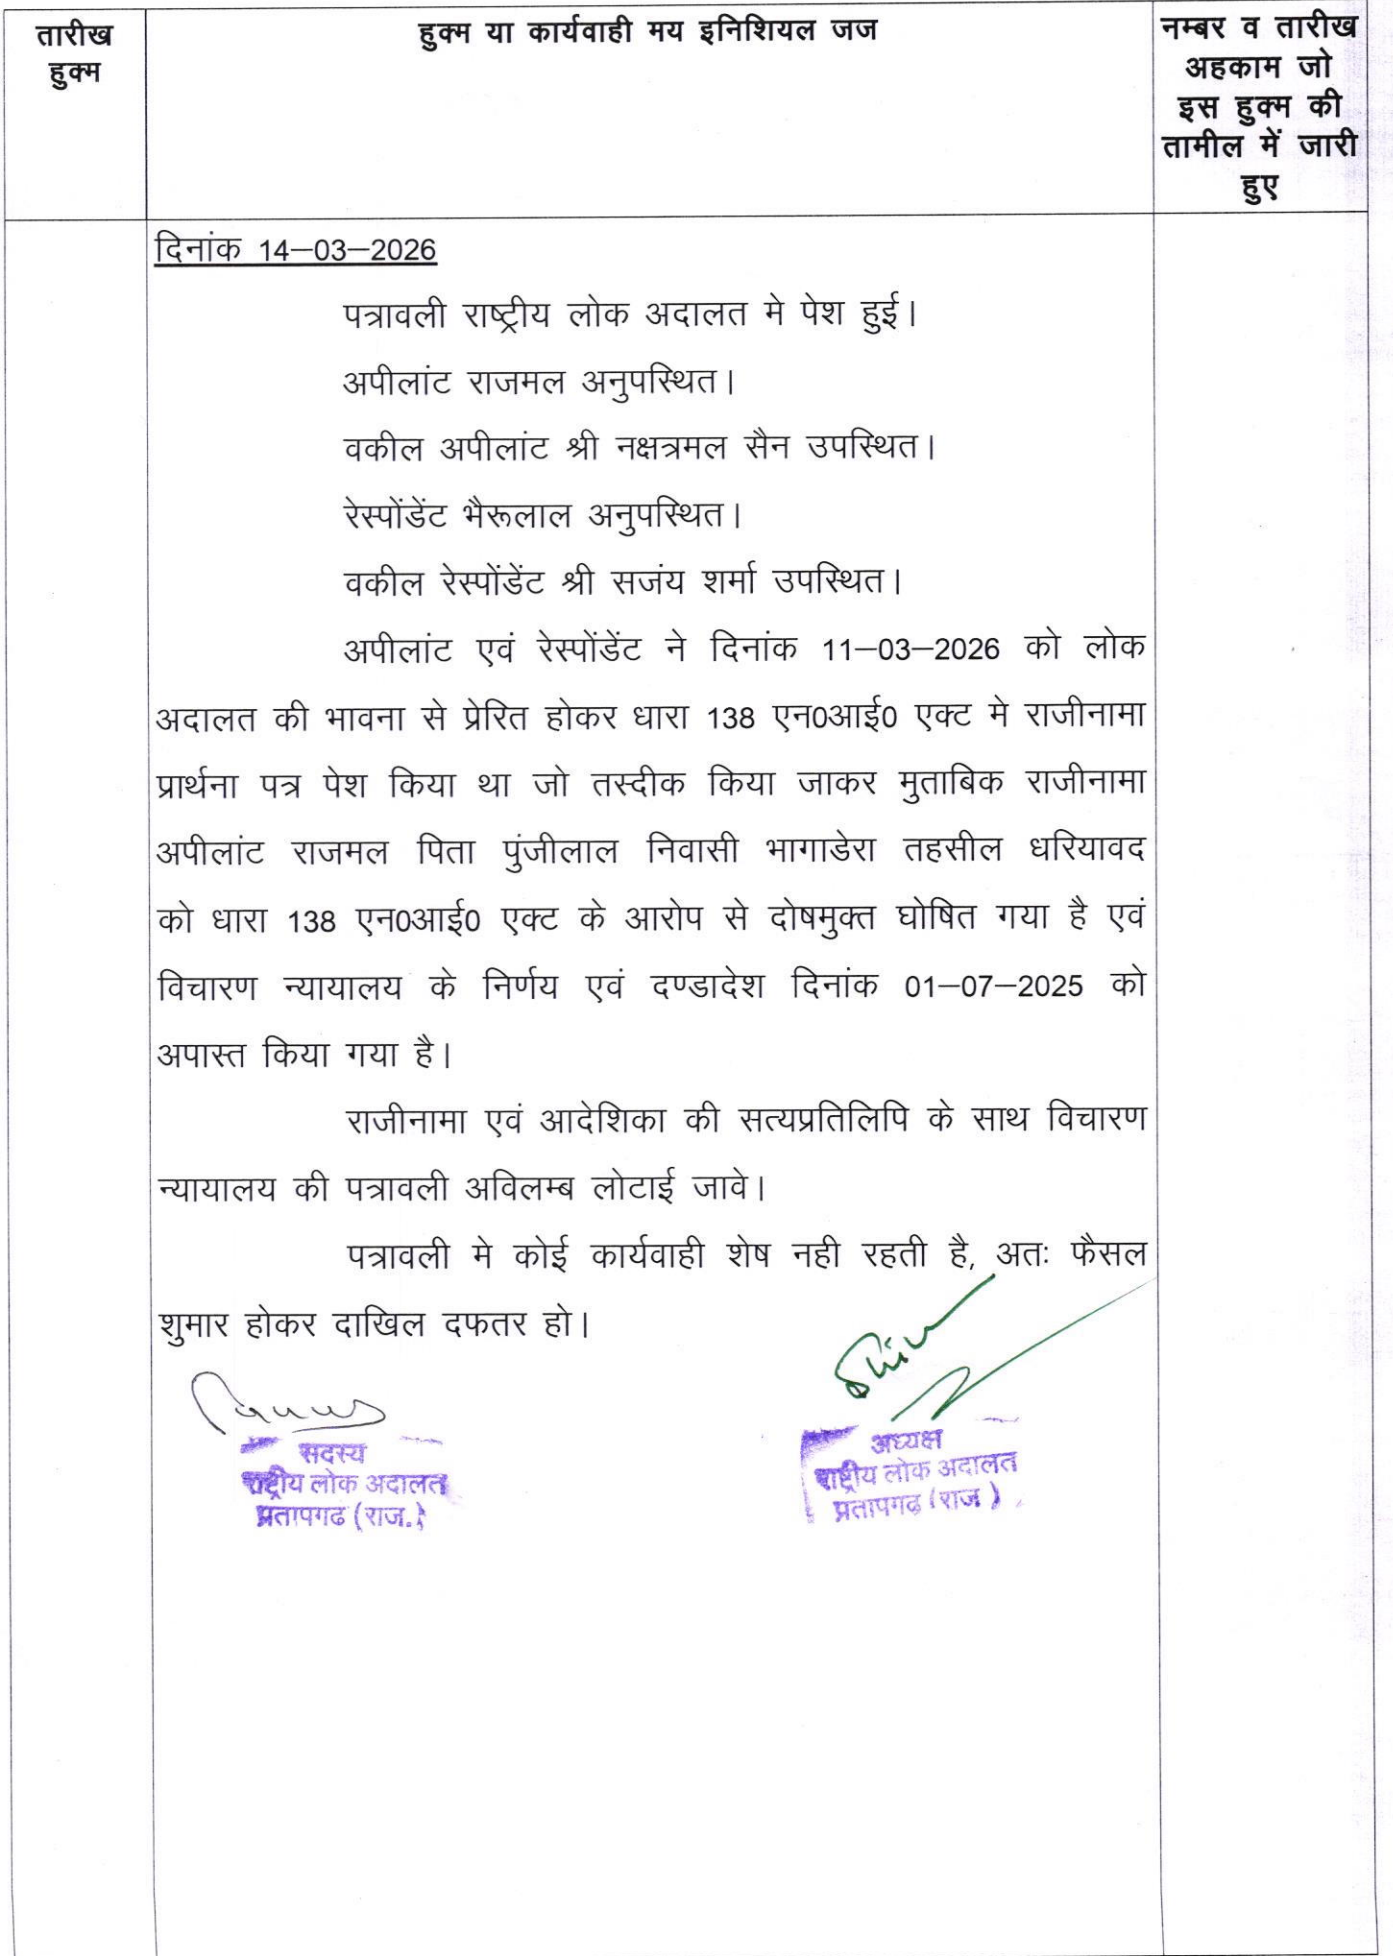 तारीख
हुक्म
हुक्म या कार्यवाही मय इनिशियल जज
नम्बर व तारीख
अहकाम जो
इस हुक्म की
तामील में जारी
हुए
दिनांक 14–03–2026
पत्रावली राष्ट्रीय लोक अदालत मे पेश हुई।
अपीलांट राजमल अनुपस्थित।
वकील अपीलांट श्री नक्षत्रमल सैन उपस्थित।
रेस्पोंडेंट भैरूलाल अनुपस्थित।
वकील रेस्पोंडेंट श्री सजंय शर्मा उपस्थित।
अपीलांट एवं रेस्पोंडेंट ने दिनांक 11–03–2026 को लोक
अदालत की भावना से प्रेरित होकर धारा 138 एन0आई0 एक्ट मे राजीनामा
प्रार्थना पत्र पेश किया था जो तस्दीक किया जाकर मुताबिक राजीनामा
अपीलांट राजमल पिता पुंजीलाल निवासी भागाडेरा तहसील धरियावद
को धारा 138 एन0आई0 एक्ट के आरोप से दोषमुक्त घोषित गया है एवं
विचारण न्यायालय के निर्णय एवं दण्डादेश दिनांक 01–07–2025 को
अपास्त किया गया है।
राजीनामा एवं आदेशिका की सत्यप्रतिलिपि के साथ विचारण
न्यायालय की पत्रावली अविलम्ब लोटाई जावे।
पत्रावली मे कोई कार्यवाही शेष नही रहती है, अतः फैसल
शुमार होकर दाखिल दफतर हो।
सदस्य
राष्ट्रीय लोक अदालत
प्रतापगढ (राज.)
अध्यक्ष
राष्ट्रीय लोक अदालत
प्रतापगढ (राज )